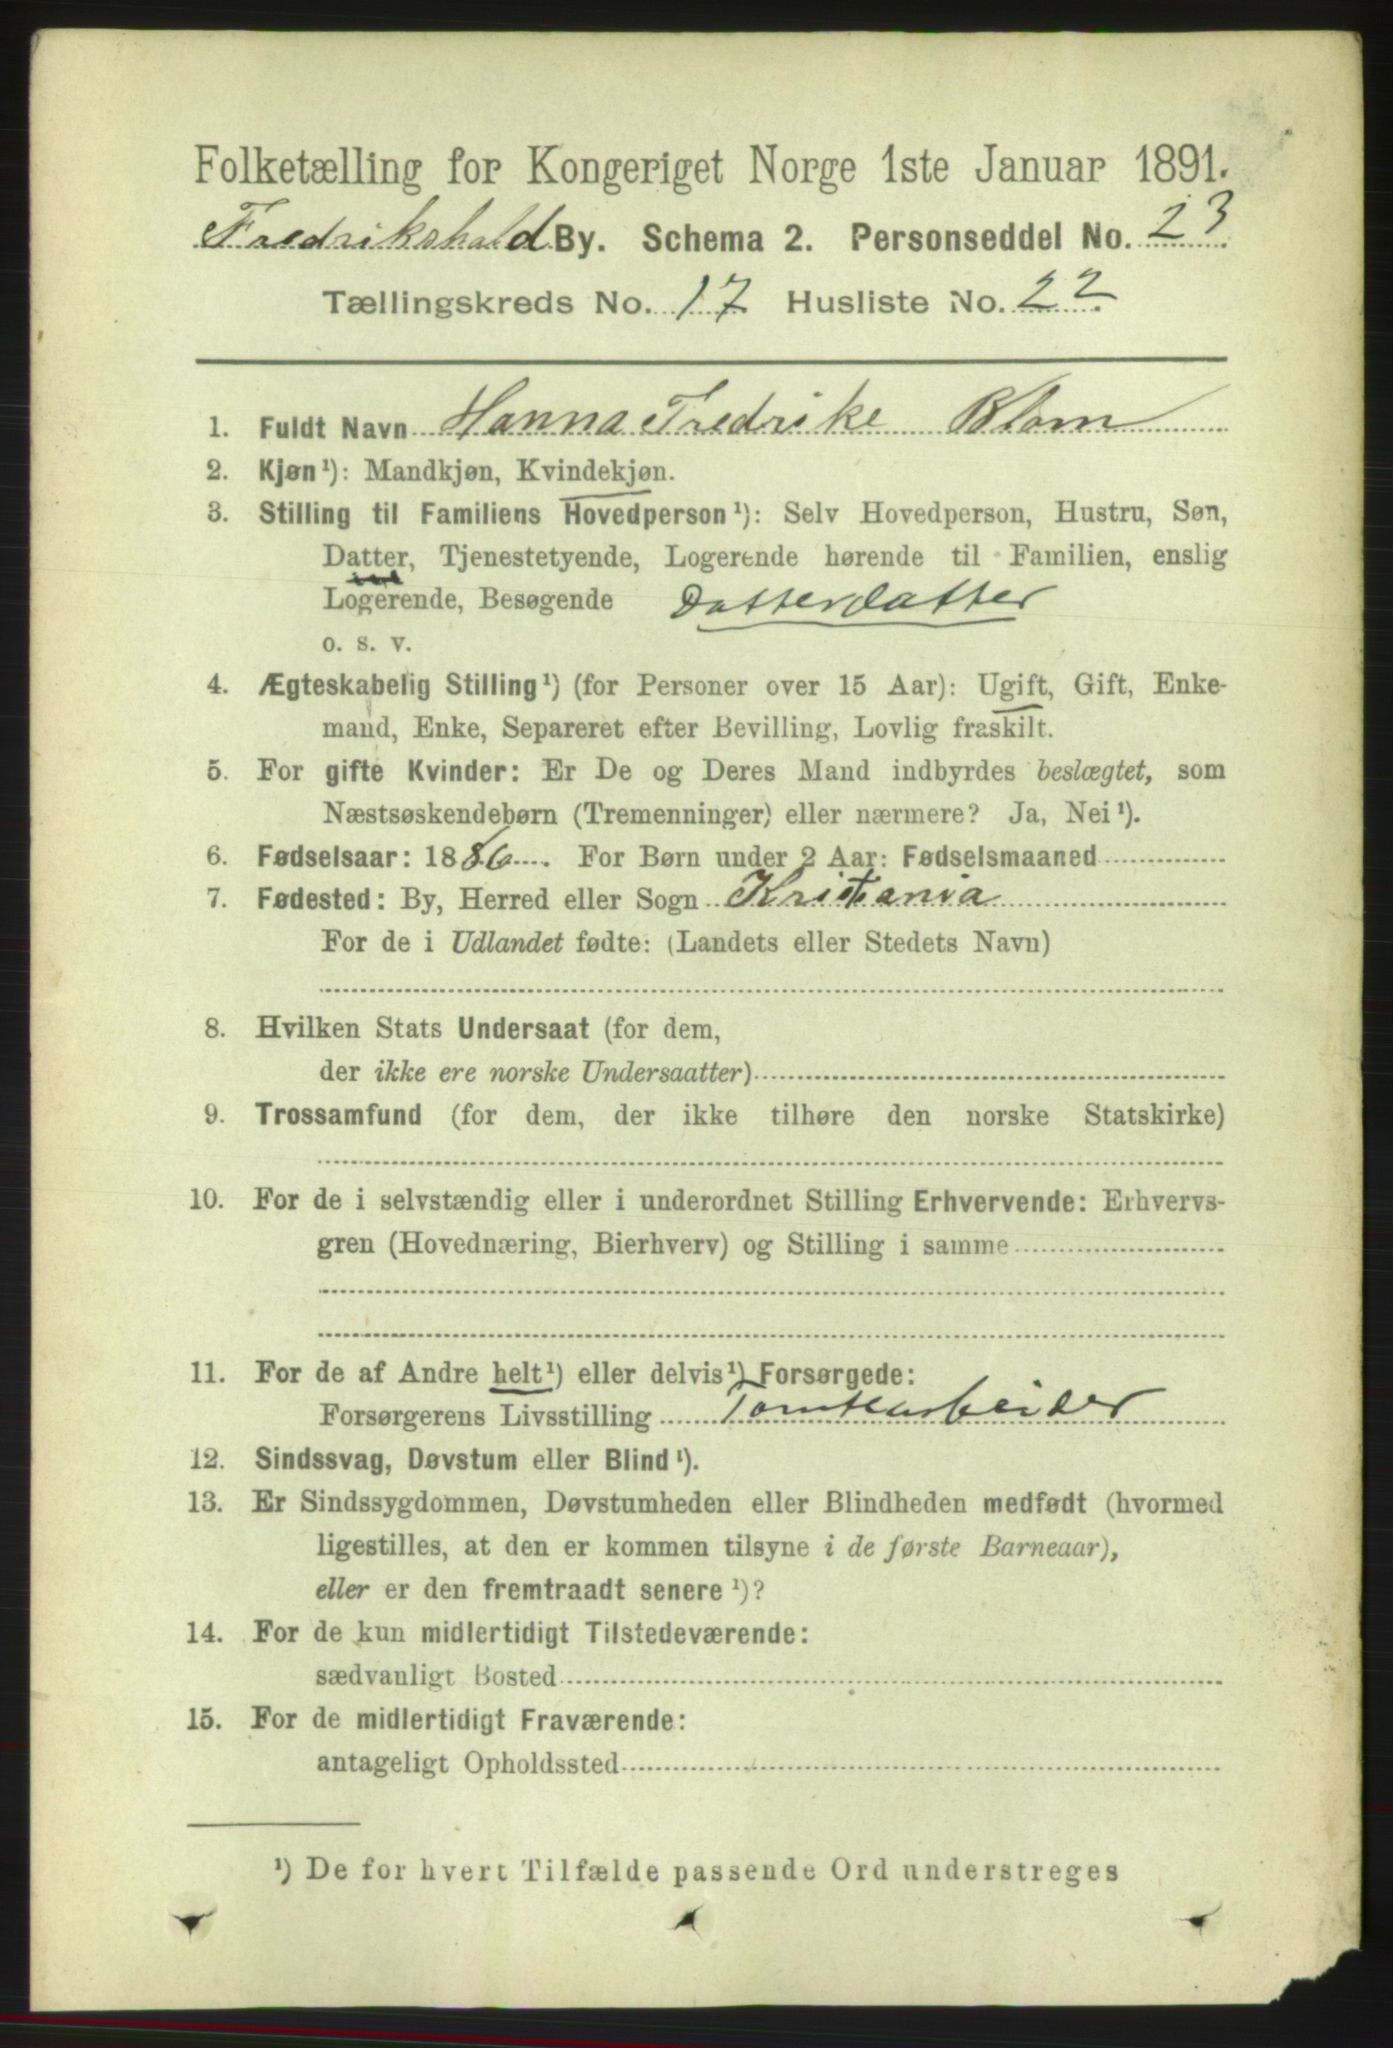 Folketælling for Kongeriget Norge 1ste Januar 1891.
Fredrikshald By. Schema 2. Personseddel No. 23
Tællingskreds No. 17 Husliste No. 22
1. Fuldt Navn Hanna Fredrike Blom
2. Kjøn¹): Mandkjøn, Kvindekjøn.
3. Stilling til Familiens Hovedperson¹): Selv Hovedperson, Hustru, Søn,
Datter, Tjenestetyende, Logerende hørende til Familien, enslig
Logerende, Besøgende Datterdatter
o. s. v.
4. Ægteskabelig Stilling¹) (for Personer over 15 Aar): Ugift, Gift, Enke-
mand, Enke, Separeret efter Bevilling, Lovlig fraskilt.
5. For gifte Kvinder: Er De og Deres Mand indbyrdes beslægtet, som
Næstsøskendebørn (Tremenninger) eller nærmere? Ja, Nei¹).
6. Fødselsaar: 1886. For Børn under 2 Aar: Fødselsmaaned
7. Fødested: By, Herred eller Sogn Kristiania
For de i Udlandet fødte: (Landets eller Stedets Navn)
8. Hvilken Stats Undersaat (for dem,
der ikke ere norske Undersaatter)
9. Trossamfund (for dem, der ikke tilhøre den norske Statskirke)
10. For de i selvstændig eller i underordnet Stilling Erhvervende: Erhvervs-
gren (Hovednæring, Bierhverv) og Stilling i samme
11. For de af Andre helt¹) eller delvis¹) Forsørgede:
Forsørgerens Livsstilling Tomtearbeider
12. Sindssvag, Døvstum eller Blind¹).
13. Er Sindssygdommen, Døvstumheden eller Blindheden medfødt (hvormed
ligestilles, at den er kommen tilsyne i de første Barneaar),
eller er den fremtraadt senere¹)?
14. For de kun midlertidigt Tilstedeværende:
sædvanligt Bosted
15. For de midlertidigt Fraværende:
antageligt Opholdssted
¹) De for hvert Tilfælde passende Ord understreges